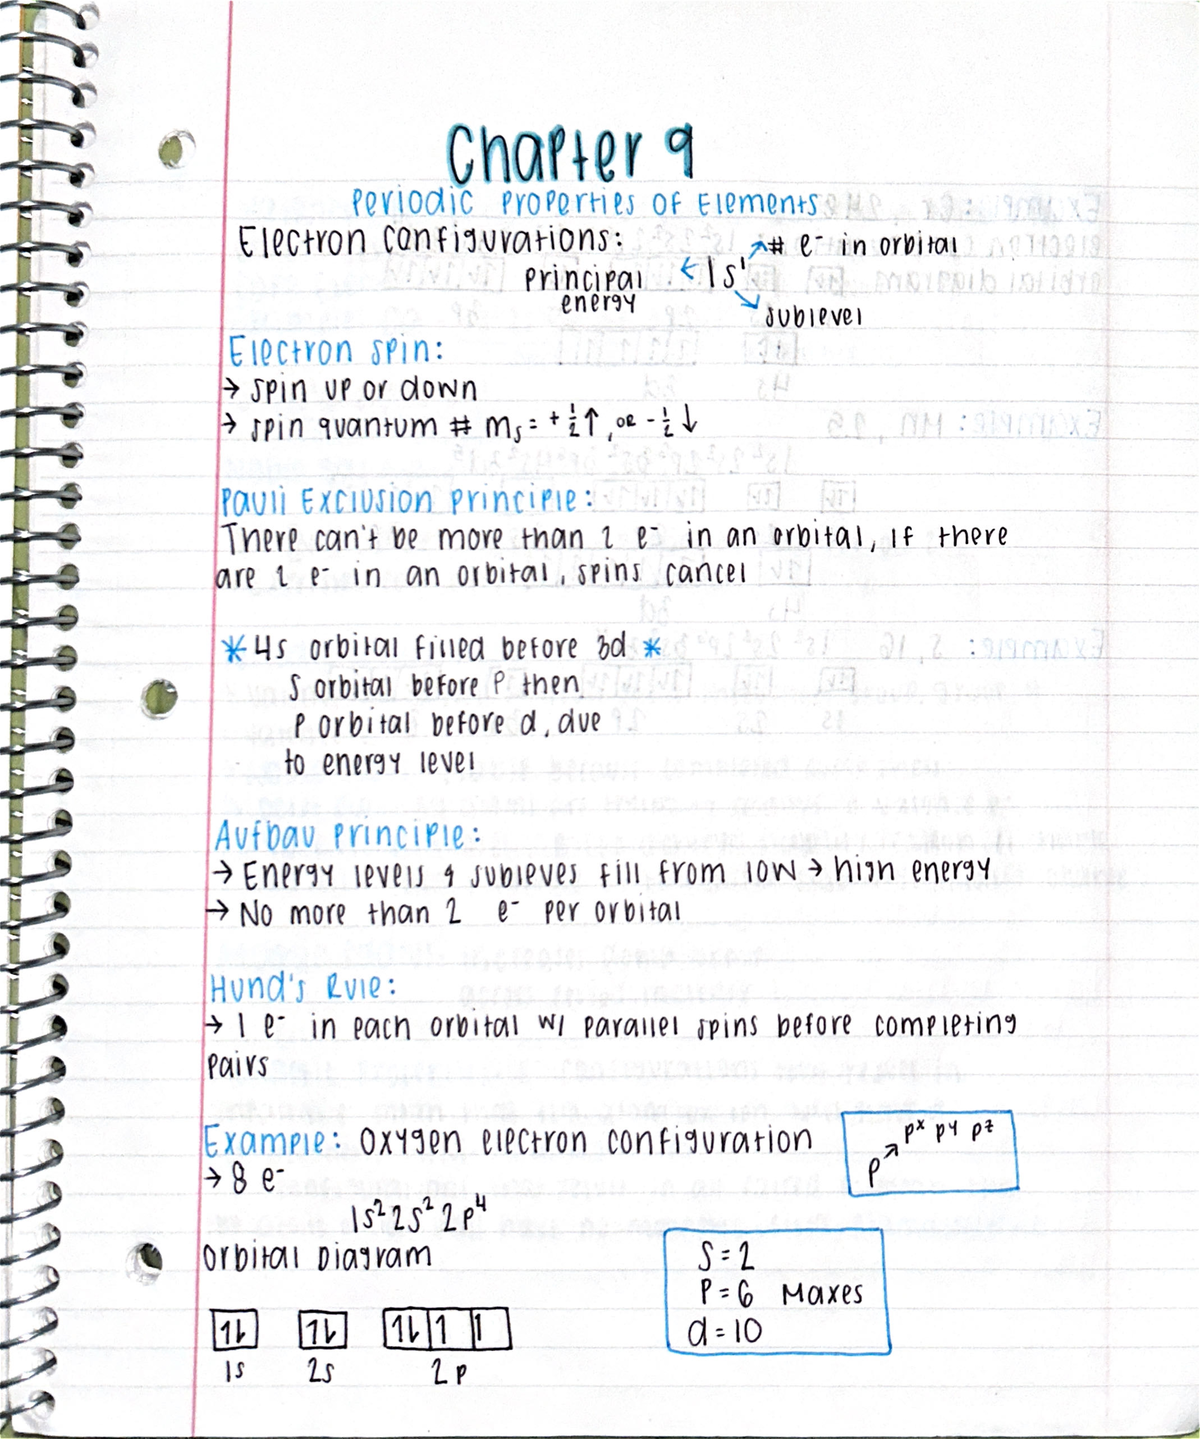 Chapter 9
Periodic Properties of Elements
Electron Configurations:
principal energy ← 1s¹ ↗ # e⁻ in orbital ↘ sublevel
Electron spin:
→ spin up or down
→ spin quantum # mₛ = +½↑, or -½↓
Pauli Exclusion principle:
There can't be more than 2 e⁻ in an orbital, if there
are 2 e⁻ in an orbital, spins cancel
* 4s orbital filled before 3d *
s orbital before p then
p orbital before d, due
to energy level
Aufbau principle:
→ Energy levels & subleves fill from low → high energy
→ No more than 2 e⁻ per orbital
Hund's Rule:
→ 1 e⁻ in each orbital w/ parallel spins before completing
pairs
Example: Oxygen electron configuration
→ 8 e⁻
1s² 2s² 2p⁴
p ↗ pˣ pʸ pᶻ
orbital Diagram
1s 2s 2p
s = 2
p = 6 Maxes
d = 10